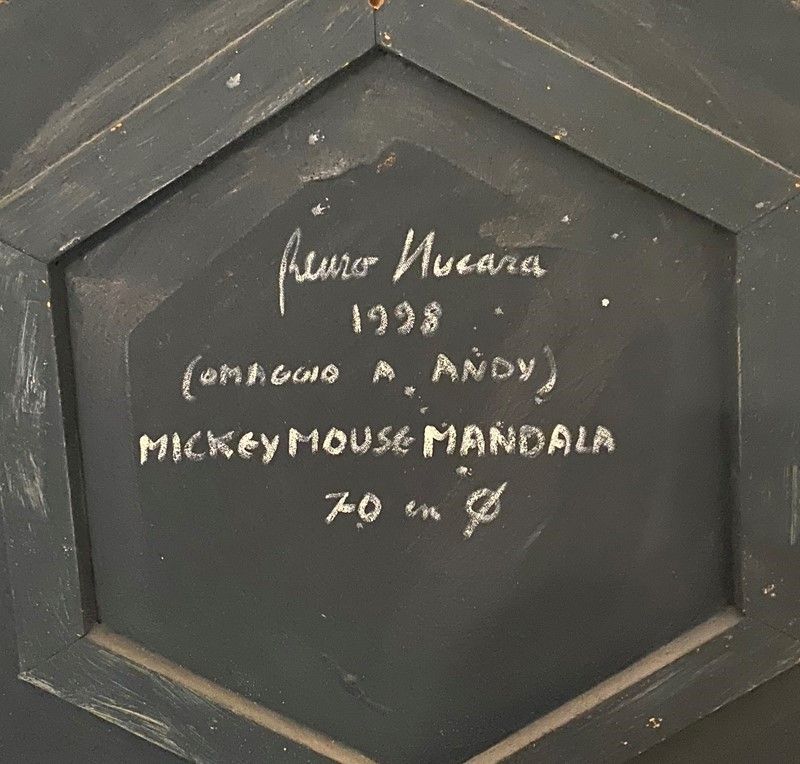 Nucara
1998
(OMAGGIO A ANDY)
MICKEY MOUSE MANDALA
70 cm Ø